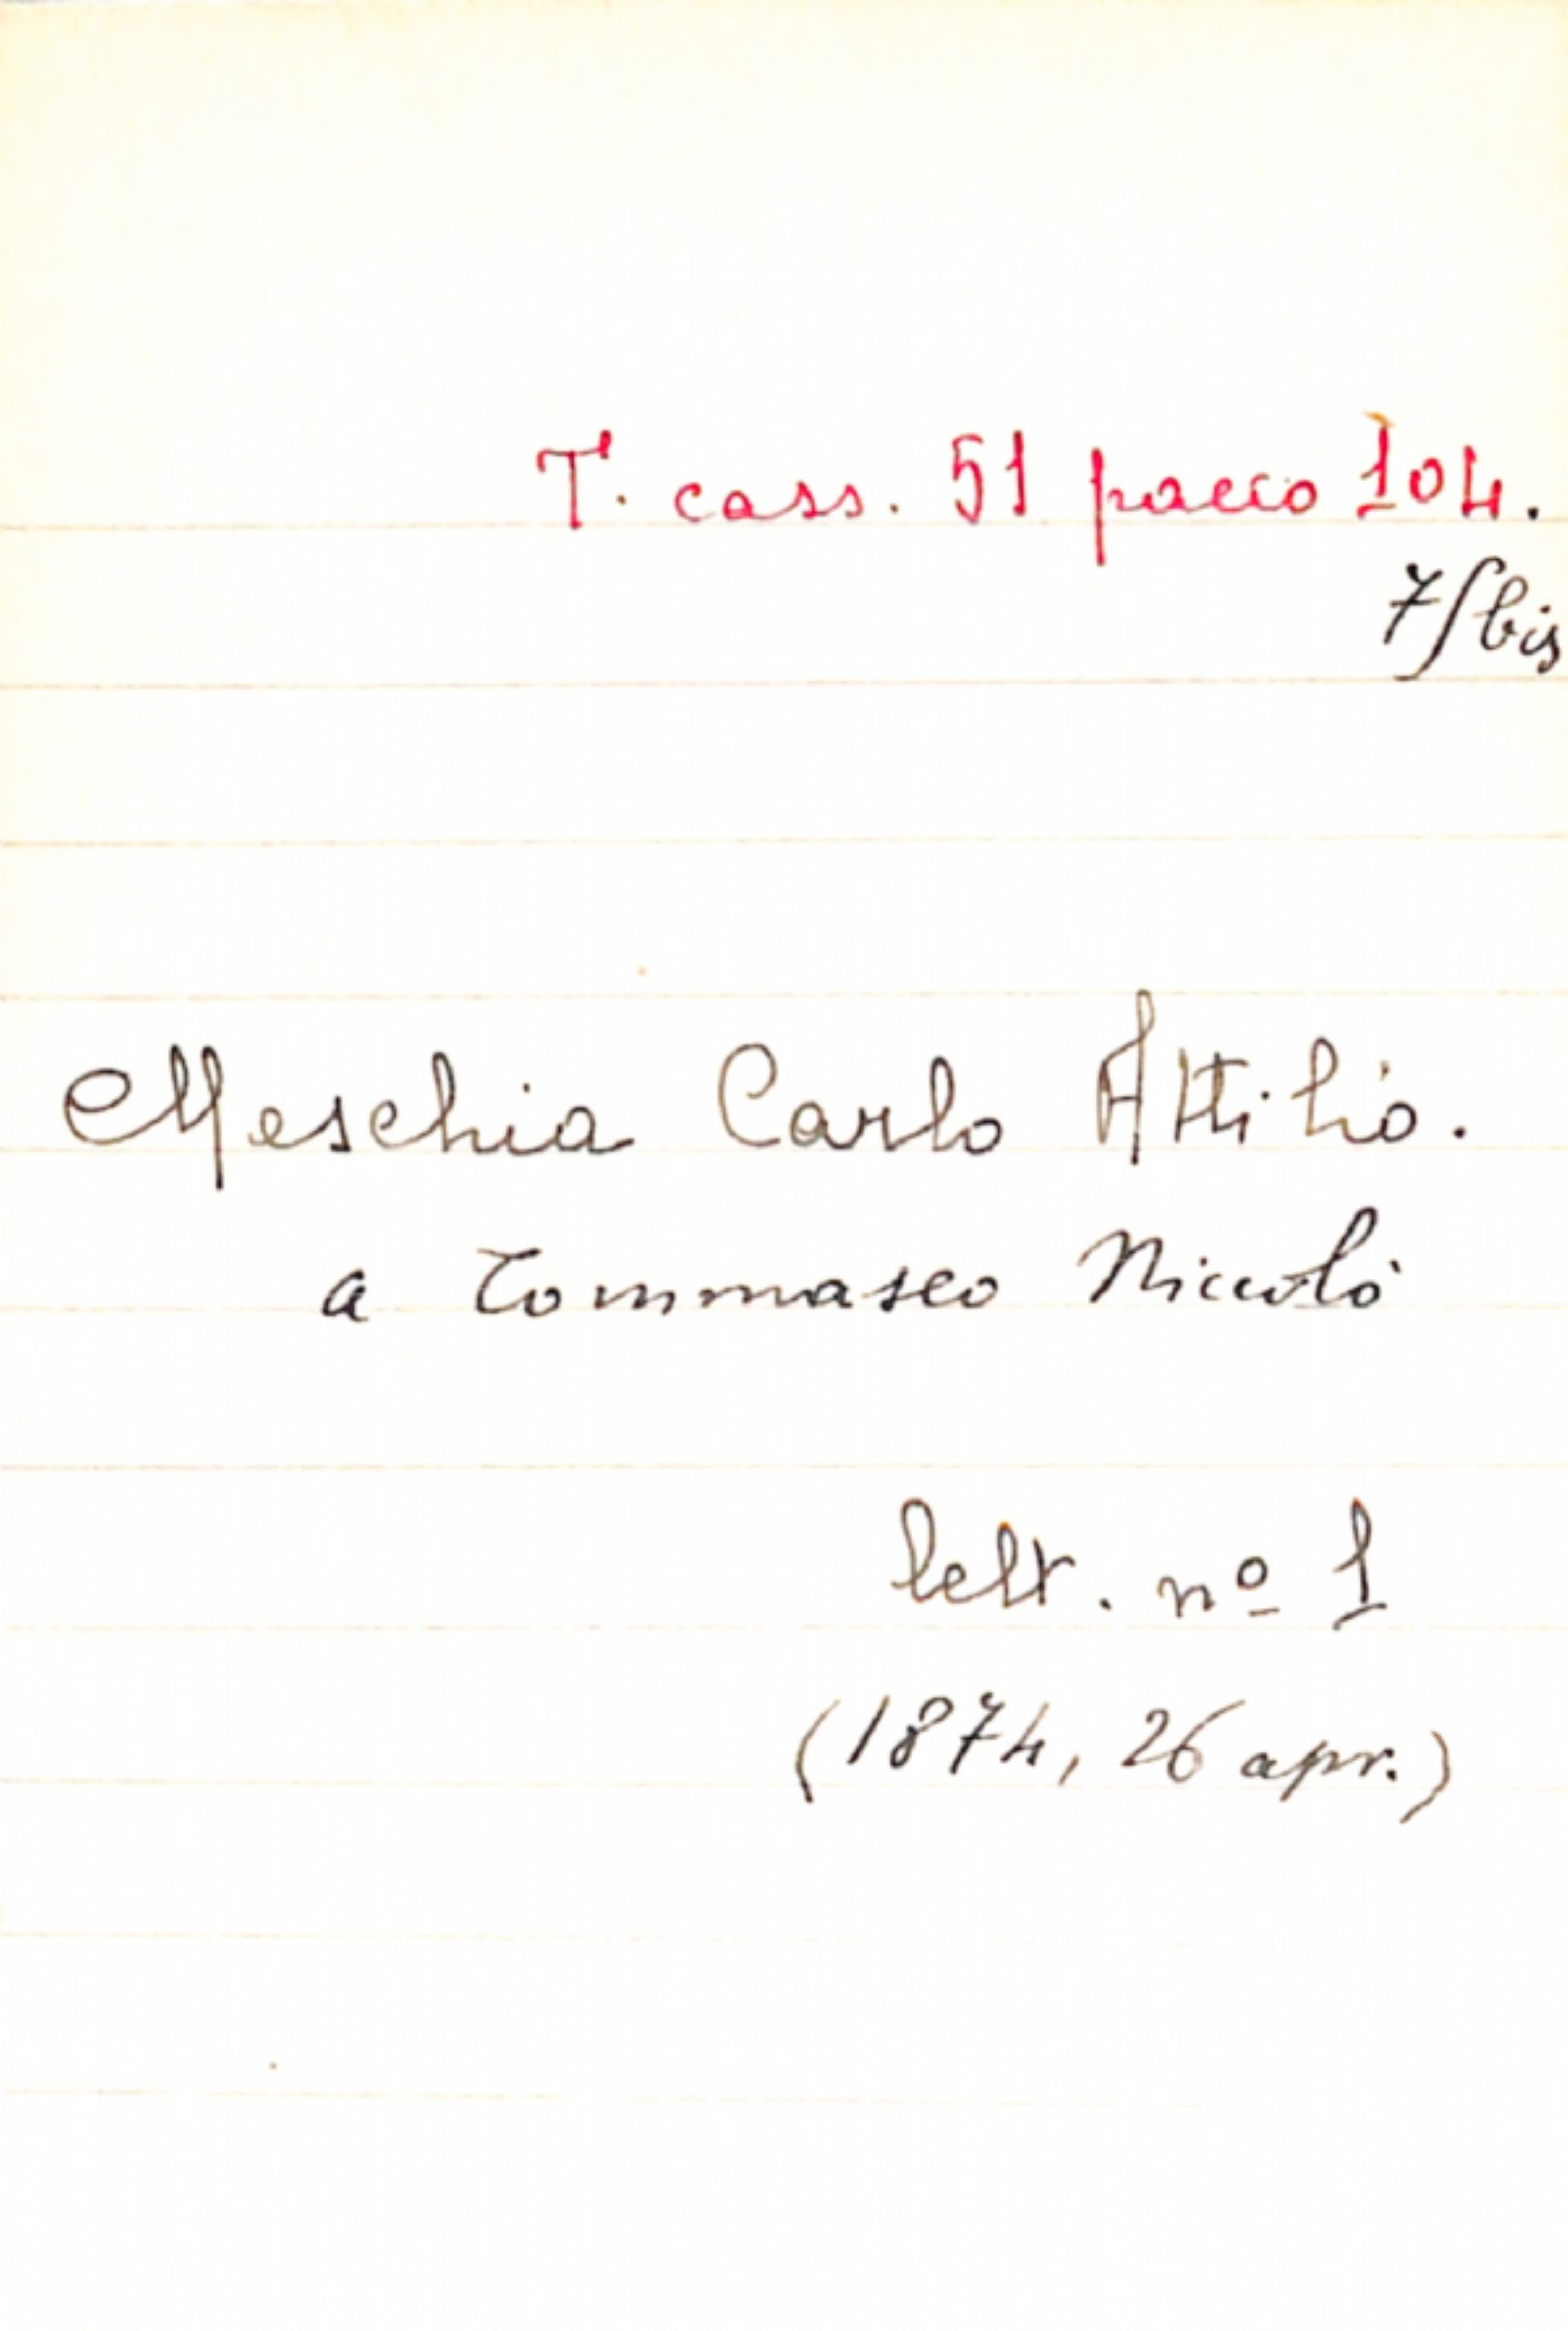 T. cass. 51 pacco 104.
7/bis
Meschia Carlo Attilio.
a Tommaseo Niccolò
lett. nº 1
(1874, 26 apr.)